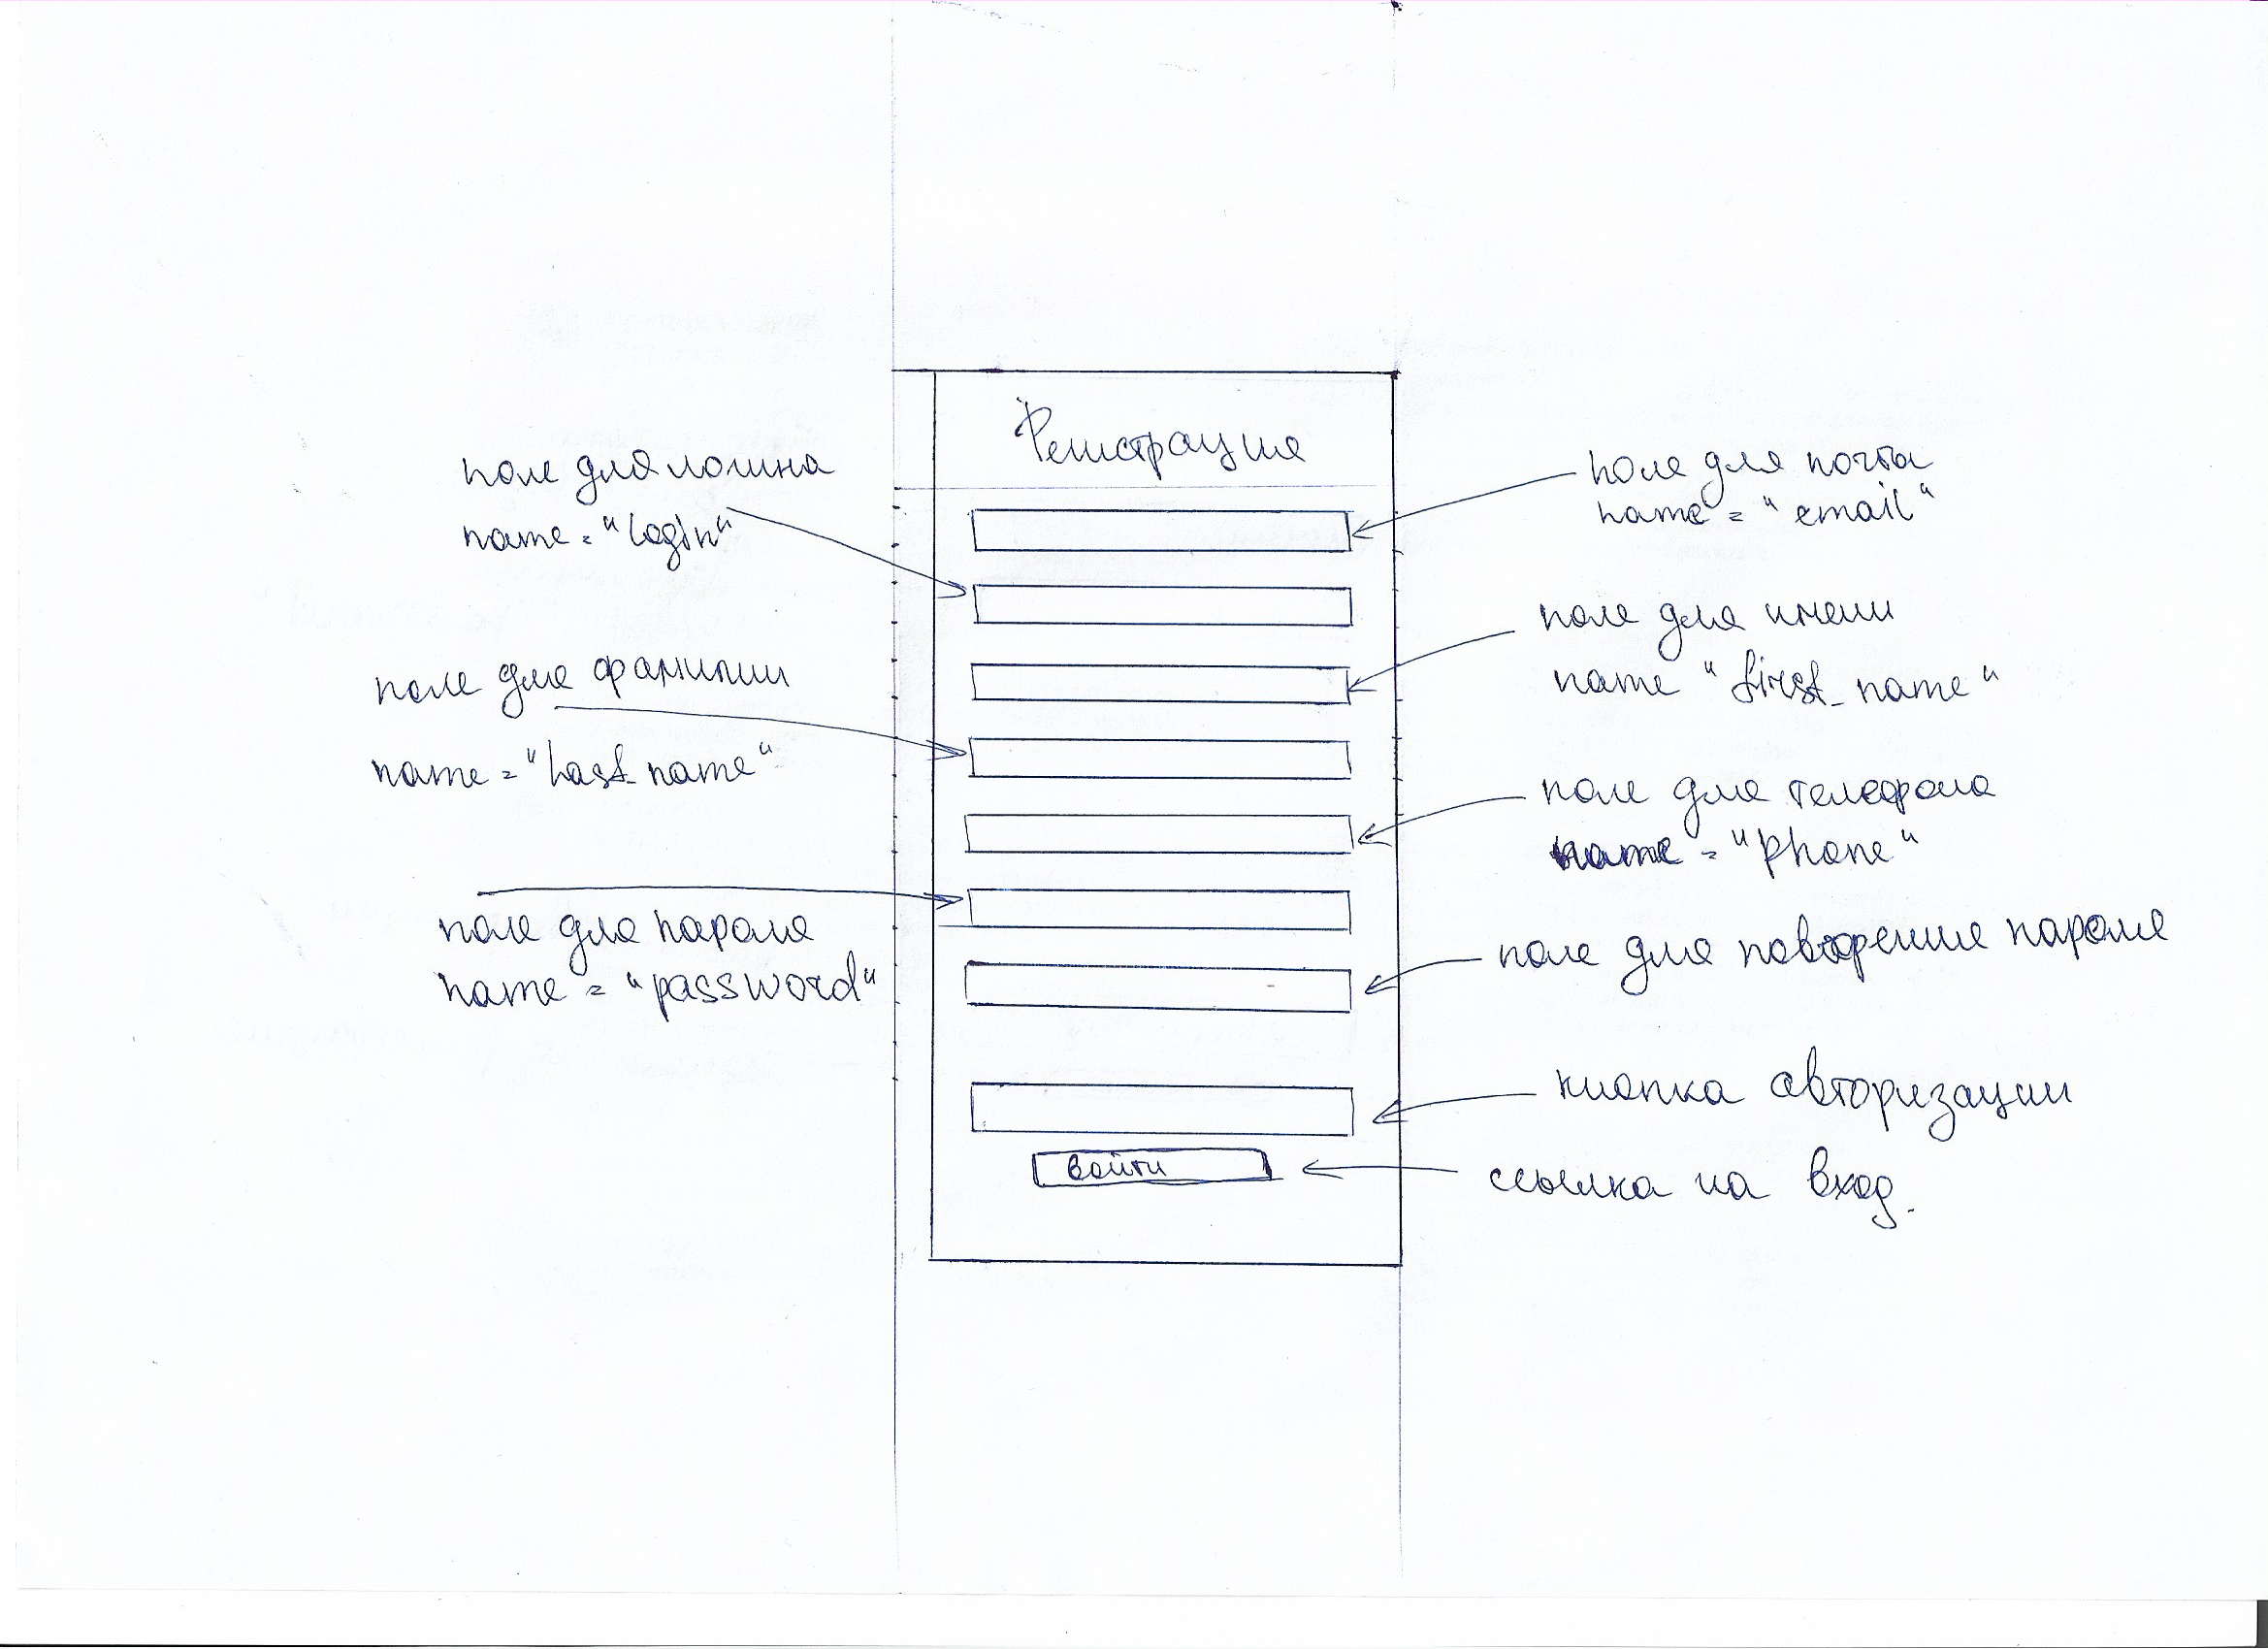 Регистрация
поле для логина
name = "login"
поле для почты
name = "email"
поле для имени
name "first_name"
поле для фамилии
name = "last_name"
поле для телефона
name = "phone"
поле для пароля
name = "password"
поле для повторение пароля
кнопка авторизации
войти
ссылка на вход.